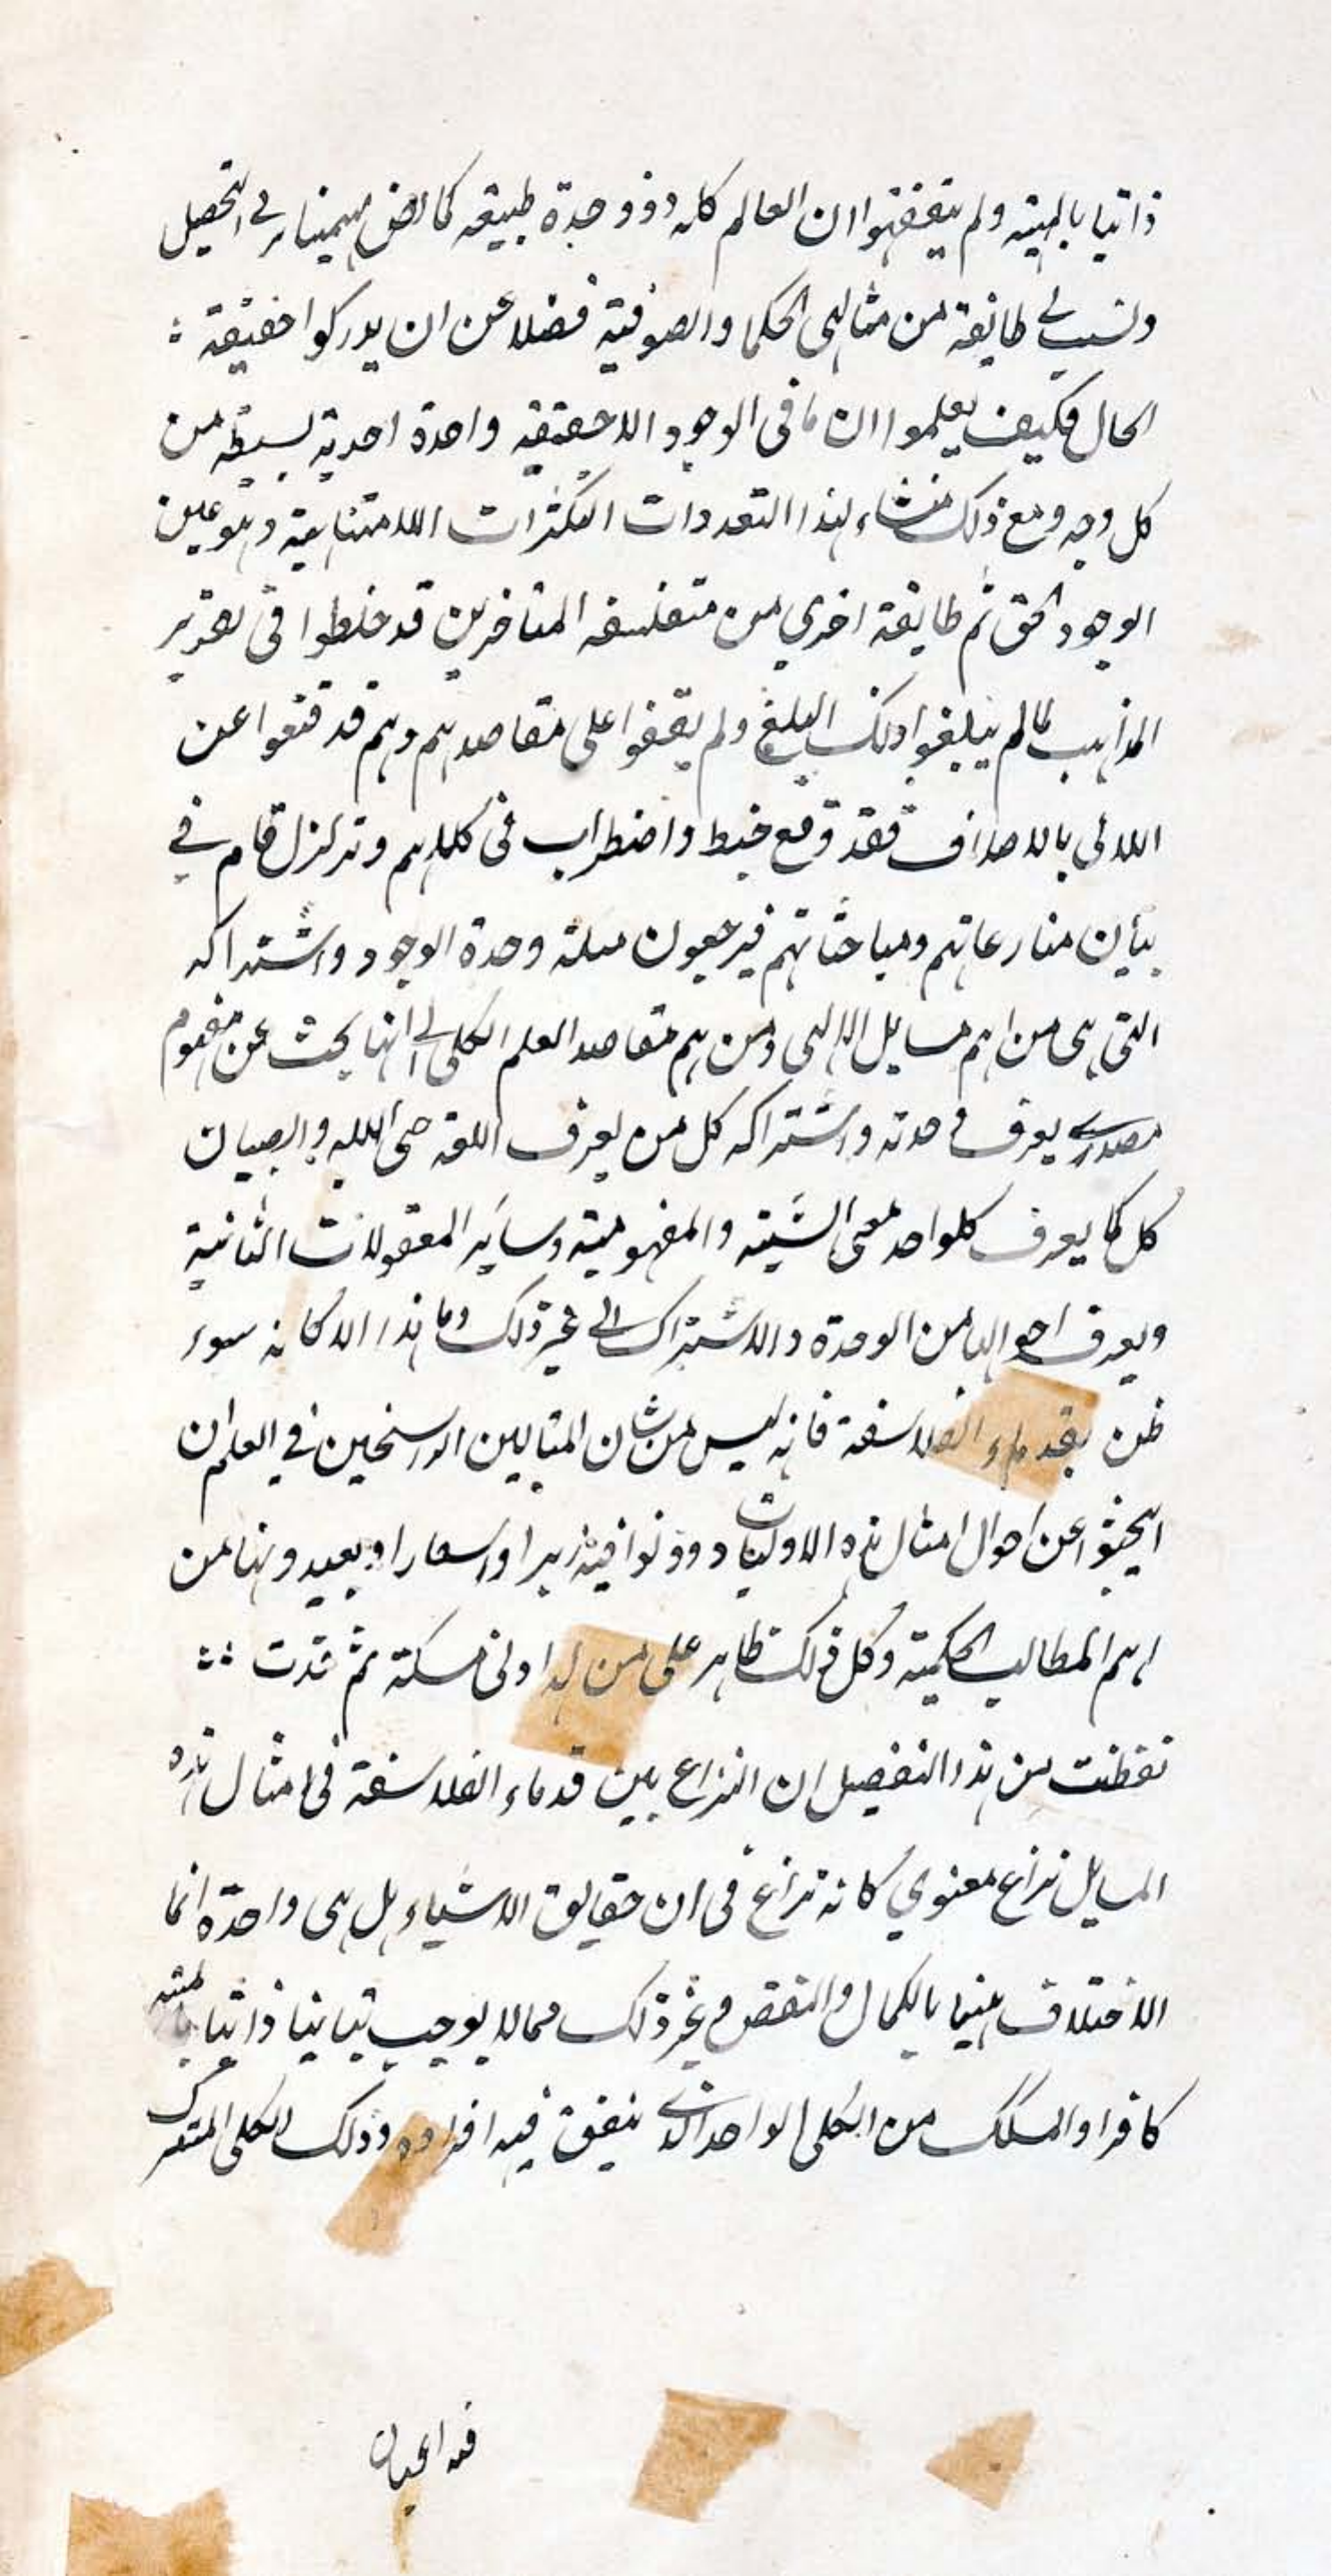 ذاتيا بالمهيته ولم يتفقهوا ان العالم كله ذو وحدة طبيعه كما اوضح في التحصيل
ونسب الى طايفة من متالهى الحكما والصوفية فضلا عن ان يدركوا حقيقة
الحال فكيف يعلموا ان ما فى الوجود الا حقيقه واحدة احدية بسيطه من
كل وجه ومع ذلك منشاء لهذا التعددات التكثرات اللامتناهية وهو عين
الوجود الحق ثم طايفة اخري من متفلسفه المتاخرين قد خلطوا فى تقرير
المذاهب لما لم يبلغوا ذلك المبلغ ولم يقفوا على مقاصدهم وهم قد قنعوا عن
اللالى بالاصداف فقد وقع خبط واضطراب فى كلامهم وتزلزل قام في
بيأن منازعاتهم ومباحثاتهم فيرجعون مسلة وحدة الوجود واشتراكه
التى هى من اهم مسايل الالهى ومن اهم مقاصد العلم الكلى الى انها بحث عن مفهوم
مصدري يعرف وحدته واشتراكه كل من يعرف اللغه حتى البله والصبيان
كل كما يعرف كلواحد معى الشيئه والمفهوميته وساير المعقولات الثانية
ويعرف احوالها من الوحدة والاشتراك الى غير ذلك وما هذا الا كانه سوء
ظن بقدماء الفلاسفة فانه ليس من شان المتالهين الراسخين في العلم ان
يبحثوا عن احوال امثال هذه الاوليات ودونوا فيه زبرا واسفارا وبعيدونها من
اهم المطالب الحكمية وكل ذلك ظاهر على من له ادنى مسكة ثم قدت
تفطنت من هذا التفصيل ان النزاع بين قدماء الفلاسفة فى امثال هذه
المسايل نزاع معنوي كانه نزاع فى ان حقايق الاشياء هل هى واحدة انما
الاختلاف بينها بالكمال والنقص وغير ذلك مما لا يوجب تباينا ذاتيا بالمهيته
كافراد السلك من الكلى الواحد الذي يتفق فيه افراده وذلك الكلى المشترك
فيه اعيان